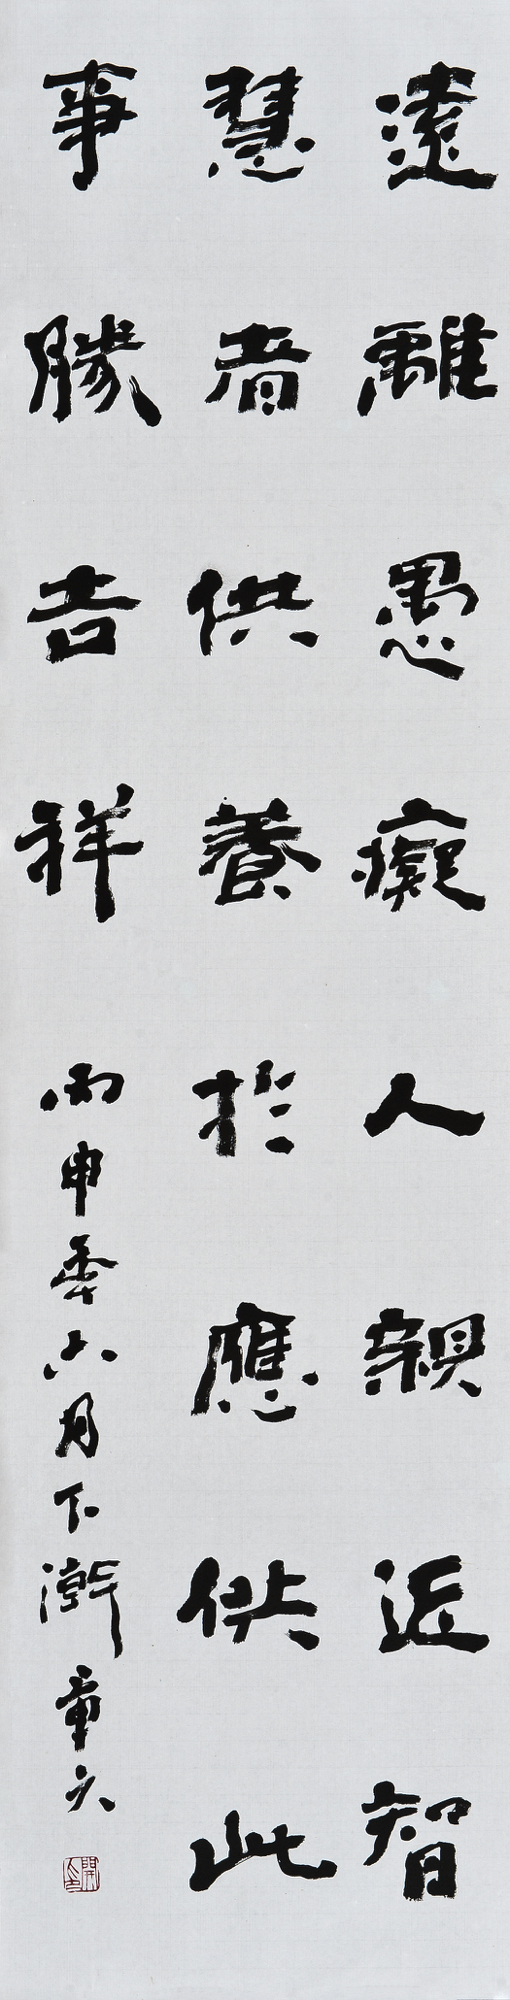 遠離愚癡人親近智
慧者供養於應供此
事勝吉祥 丙申年六月下澣章六